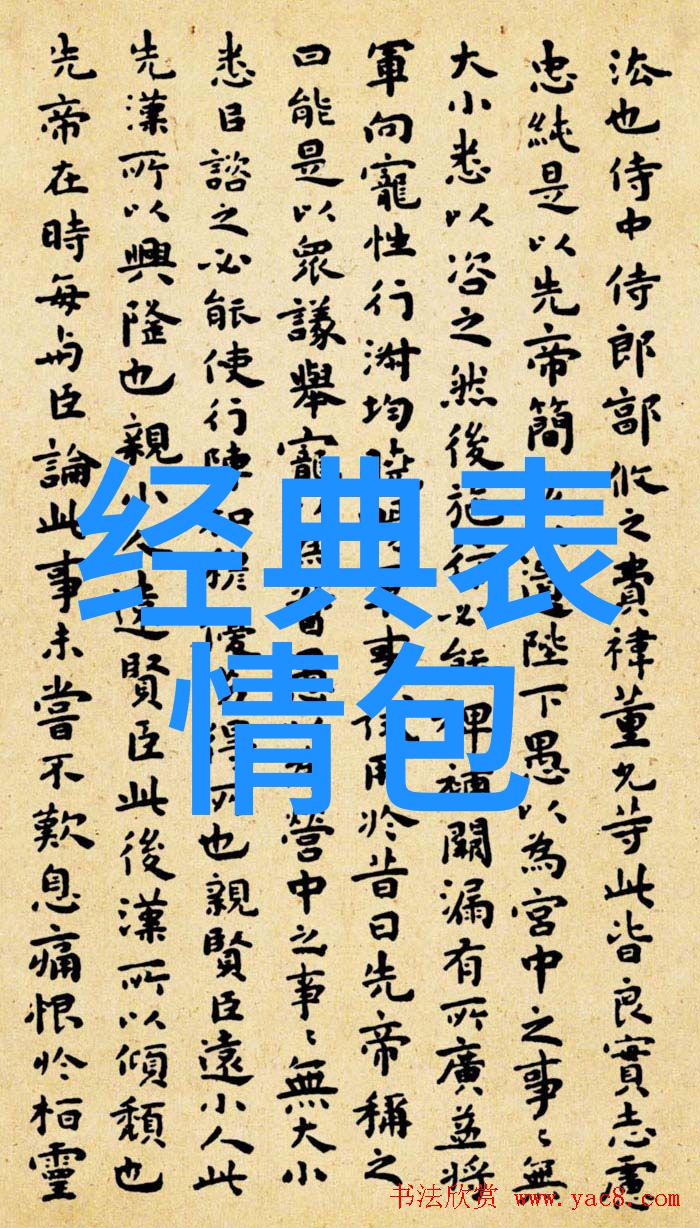 法也侍中侍郎郭攸之費禕董允等此皆良實志慮
忠純是以先帝簡遺陛下愚以為宮中之事〻無
大小悉以咨之然後施行必能裨補闕漏有所廣益將
軍向寵性行淑均曉事試用於昔日先帝稱之
曰能是以眾議舉寵為督愚營中之事〻無大小
悉以諮之必能使行陣和穆優得所也親賢臣遠小人此
先漢所以興隆也親小人遠賢臣此後漢所以傾頹也
先帝在時每与臣論此事未嘗不歎息痛恨於桓靈
经典表
情包
书法欣赏 www.yac8.com